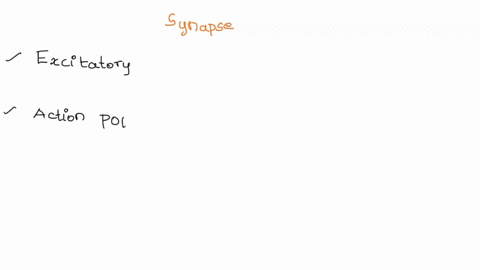 Synapse
✓ Excitatory
✓ Action pot